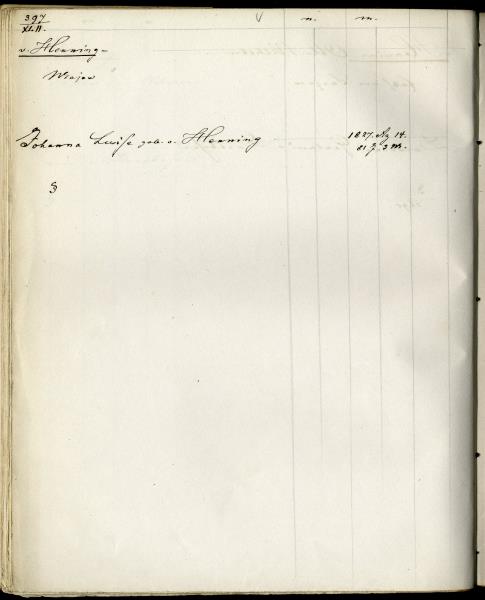 397
XLII.
v. Henning-
Major
Johanna Luise geb. v. Henning
1827. Ag 14.
81 J. 3 M.